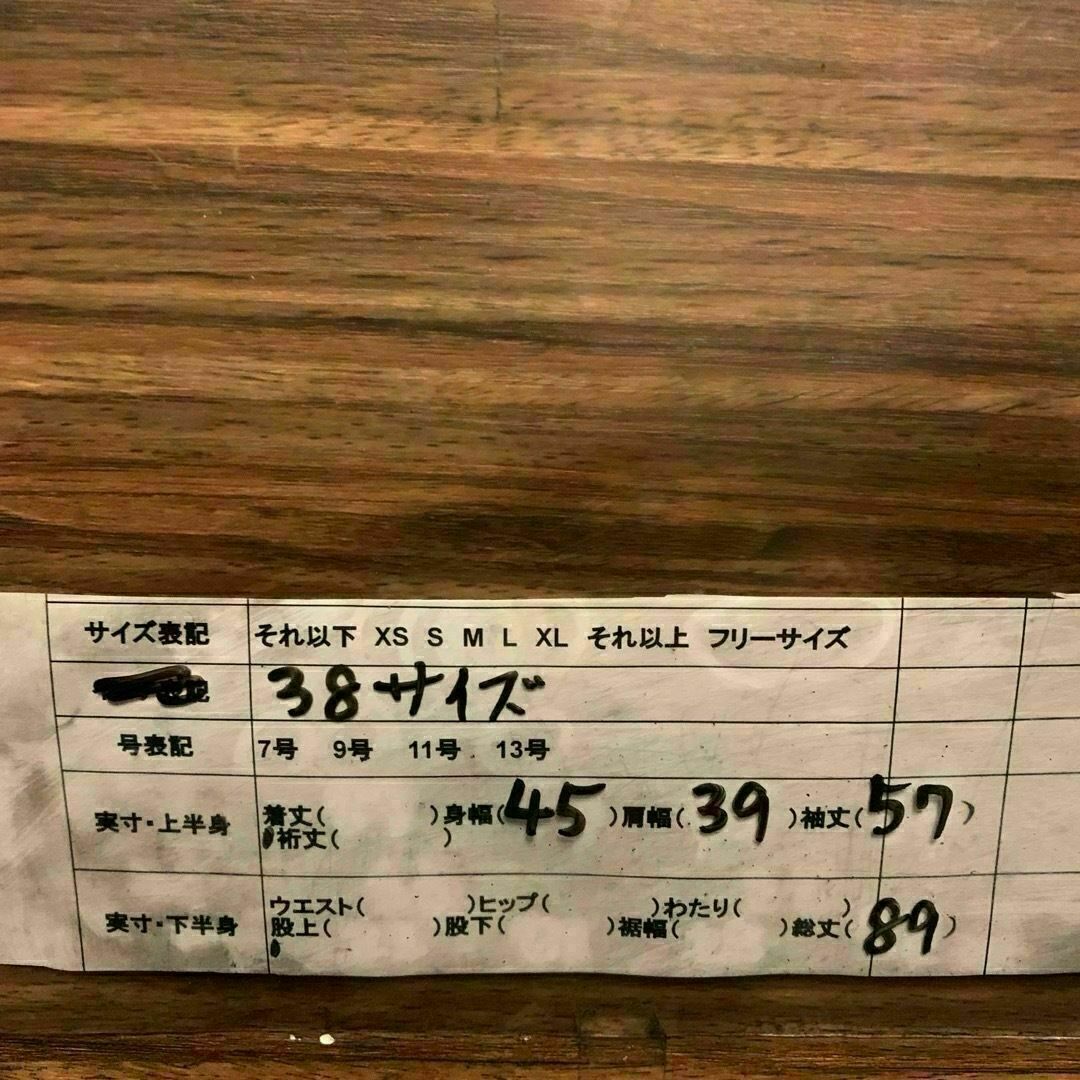 サイズ表記 それ以下 XS S M L XL それ以上 フリーサイズ
38サイズ
号表記 7号 9号 11号 13号
実寸・上半身 着丈( )身幅(45)肩幅(39)袖丈(57)
裄丈( )
実寸・下半身 ウエスト( )ヒップ( )わたり( )
股上( )股下( )裾幅( )総丈(89)